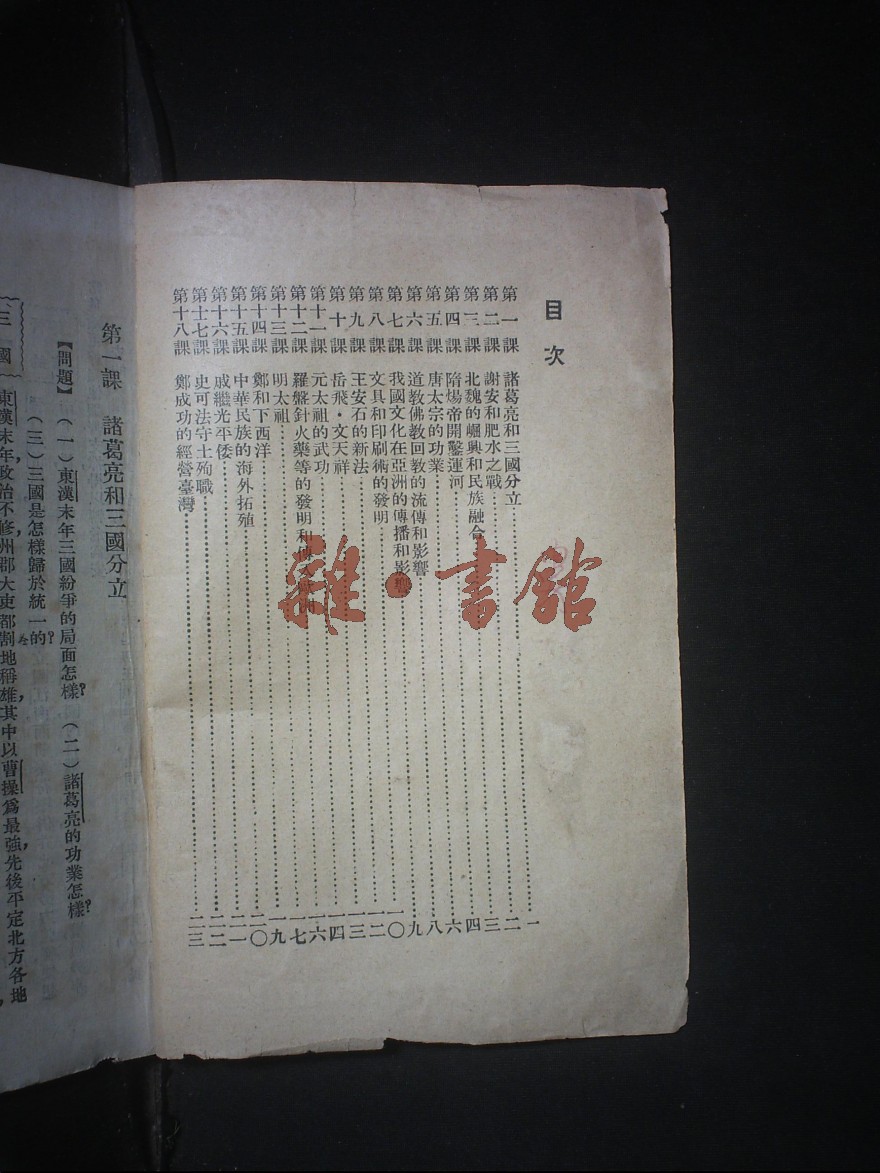 目次
第一課 諸葛亮和三國分立 一
第二課 謝安和肥水之戰 二
第三課 北魏的崛興和民族融合 三
第四課 隋煬帝開鑿運河 四
第五課 唐太宗的功業 六
第六課 道教佛教回教的流傳和影響 八
第七課 我國文化在亞洲的傳播和影響 九
第八課 文具和印刷術的發明 一〇
第九課 王安石的新法 一二
第十課 岳飛·文天祥 一三
第十一課 元太祖的武功 一四
第十二課 羅盤針火藥等的發明和 一六
第十三課 明太祖 一七
第十四課 鄭和下西洋 一九
第十五課 中華民族的海外拓殖 二〇
第十六課 戚繼光平倭 二一
第十七課 史可法守土殉職 二二
第十八課 鄭成功的經營臺灣 二三
雜·書館
第一課 諸葛亮和三國分立
【問題】（一）東漢末年三國紛爭的局面怎樣？（二）諸葛亮的功業怎樣？
（三）三國是怎樣歸於統一的？
三國 東漢末年，政治不修，州郡大吏都割地稱雄，其中以曹操爲最強，先後平定北方各地，